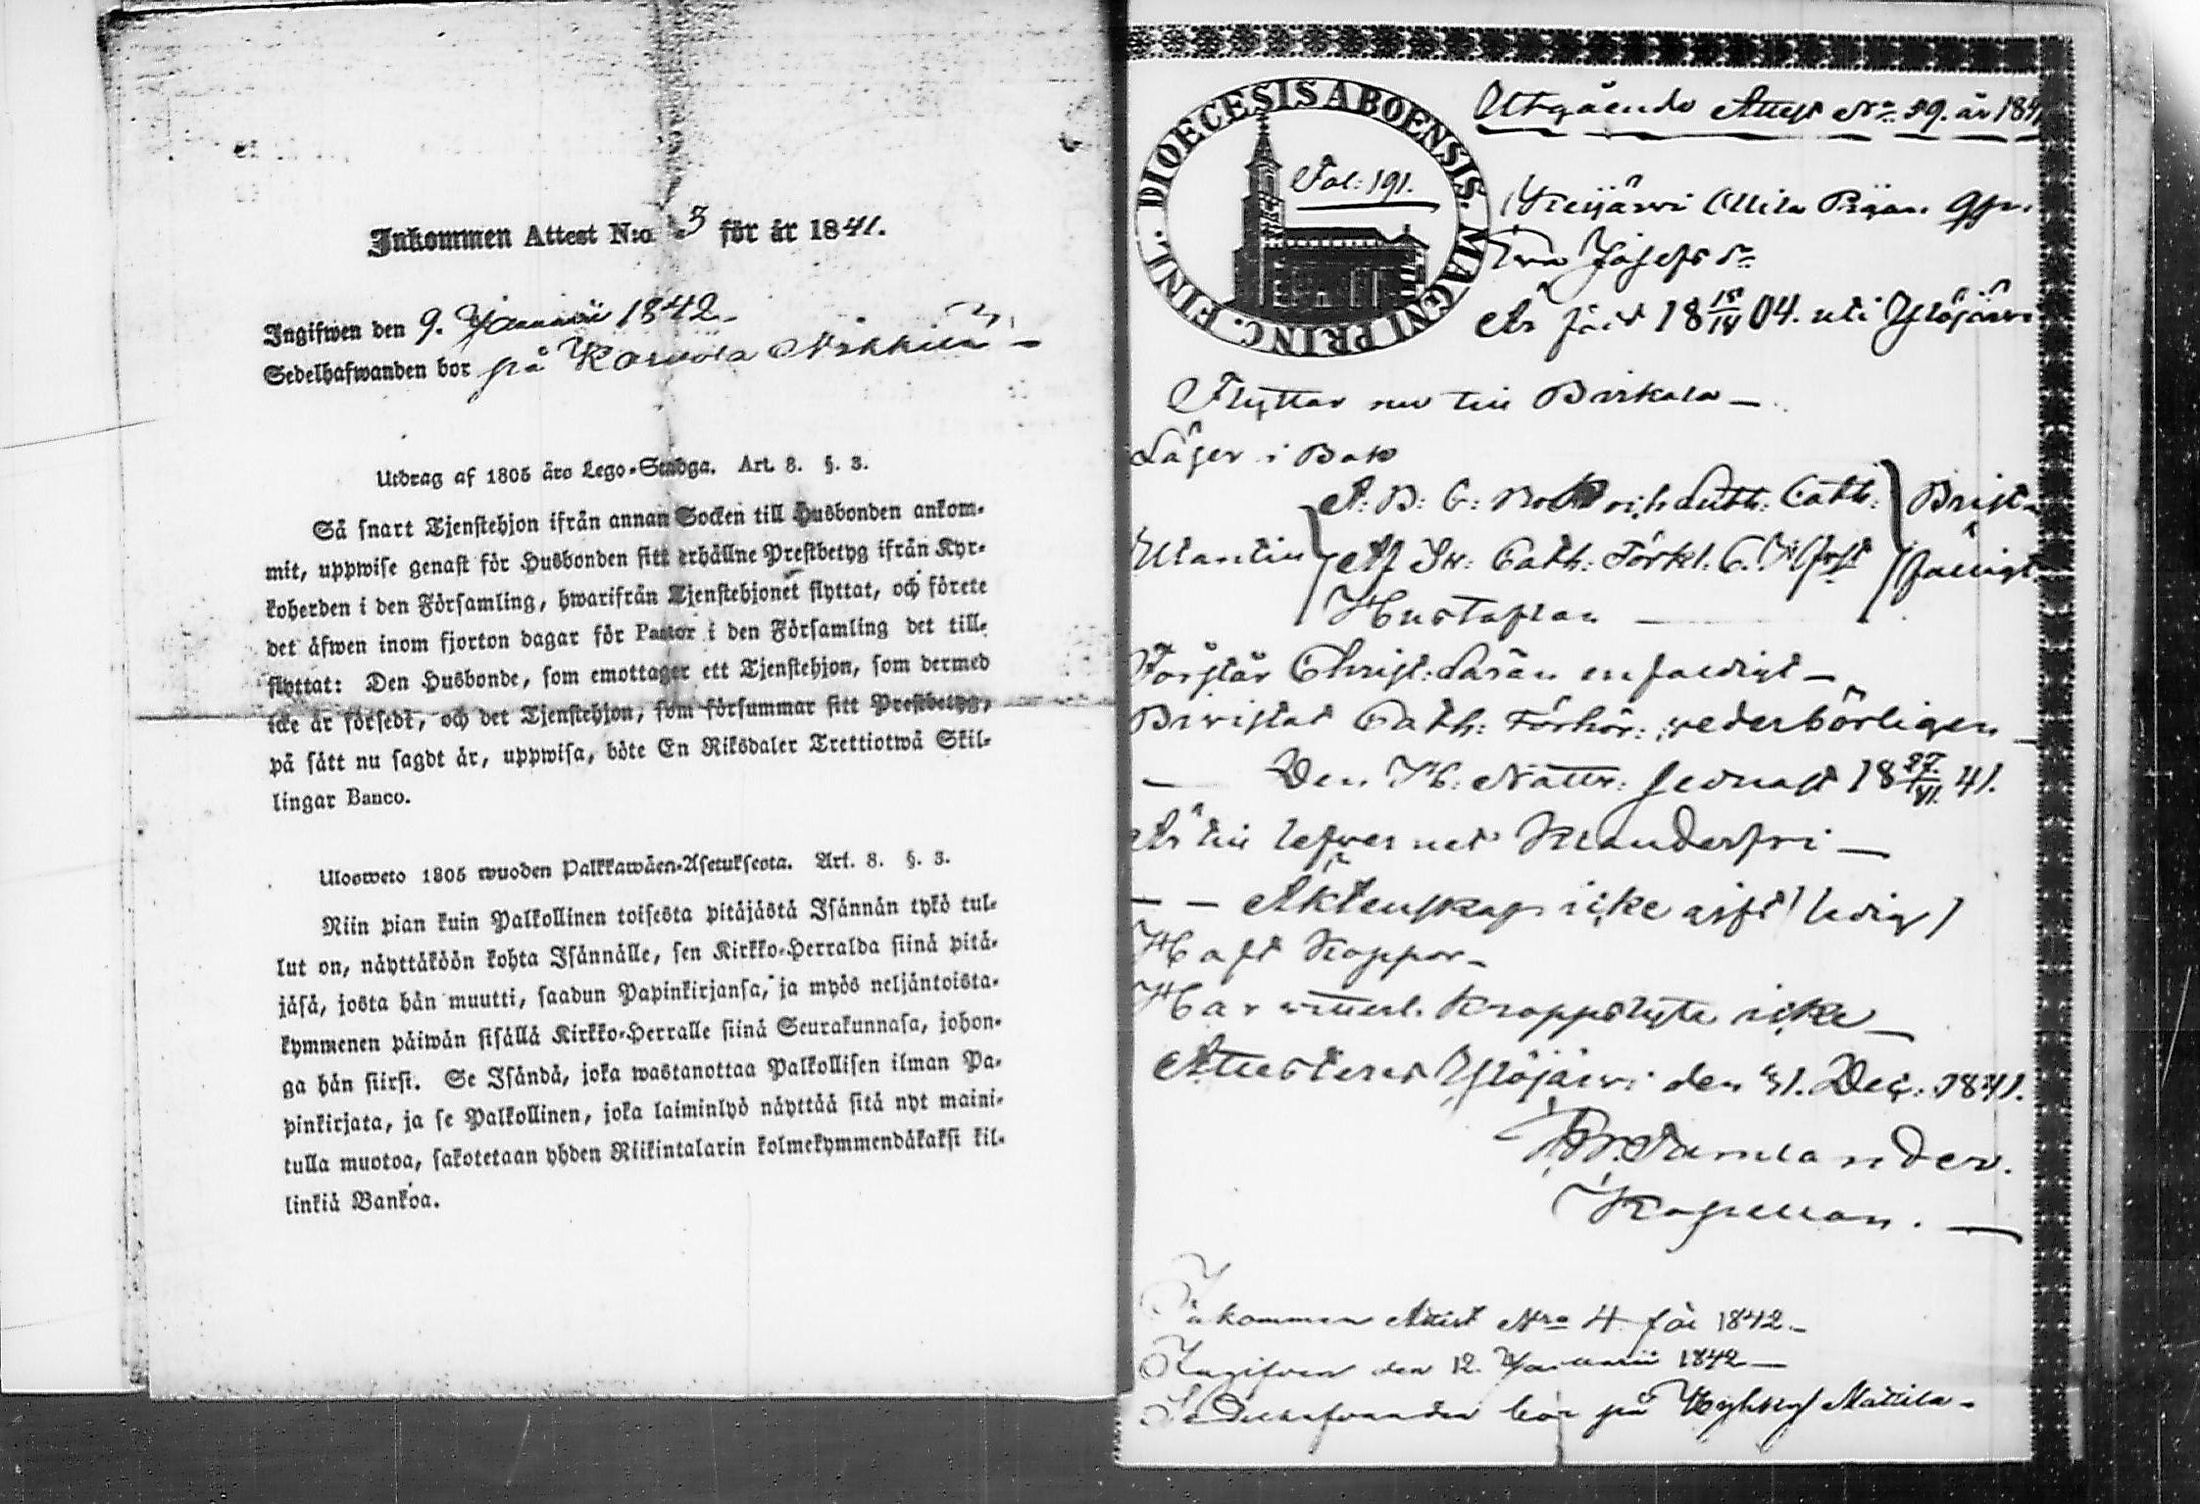 Inkommen Attest N:o 3 för år 1841.
Ingifwen den 9. Januarii 1842.
Sedelhafwanden bor på
Utdrag af 1805 års Lego-Stadga. Art. 8. §. 3.
Så snart Tjenstehjon ifrån annan Socken till Husbonden ankom-
mit, uppwise genast för Husbonden sitt erhållne Prestbetyg ifrån Kyr-
koherden i den Församling, hwarifrån Tjenstehjonet flyttat, och förete
det äfwen inom fjorton dagar för Pastor i den Församling det till-
flyttat: Den Husbonde, som emottager ett Tjenstehjon, som dermed
icke är försedt, och det Tjenstehjon, som försummar sitt Prestbetyg,
på sätt nu sagdt är, uppwisa, böte En Riksdaler Trettiotwå Skil-
lingar Banco.
Ulosweto 1805 wuoden Palkkawäen-Asetuksesta. Art. 8. §. 3.
Niin pian kuin Palkollinen toisesta pitäjästä Isännän tykö tul-
lut on, näyttäköön kohta Isännälle, sen Kirkko-Herralda siinä pitä-
jäsä, josta hän muutti, saadun Papinkirjansa, ja myös neljäntoista-
kymmenen päiwän sisällä Kirkko-Herralle siinä Seurakunnasa, johon-
ga hän siirsi. Se Isändä, joka wastanottaa Palkollisen ilman Pa-
pinkirjata, ja se Palkollinen, joka laiminlyö näyttää sitä nyt maini-
tulla muotoa, sakotetaan yhden Riikintalarin kolmekymmendäkaksi kil-
linkiä Bankoa.
DIOECESIS ABOENSIS. MAGNI PRINC. FINL.
Fol: 191.
Utgående Attest No 59. år 1841
Ollila Pigan
Ewa Josefs dr
Är född 18 15/IV 04. uti Ylöjärwi
Flyttar nu till Birkala —
Läser i Bok
A: B: C: Bok och Luth: Cath:
Utantill Af Sw: Cath: Förkl.
Hustaflan —
Förstår Christ: Läran enfaldigt —
Biwistat Cath: Förhör: wederbörligen —
— Den H: Nattw: sednast 18 27/VI. 41.
Är till lefwernet klanderfri —
— — Äktenskap icke ingådt (ledig)
Haft Koppor —
Har kroppslyte icke —
Attesteras Ylöjärwi den 31. Dec: 1841.
Kapellan. —
Inkommen Attest Nro 4 för 1842 —
Ingifven den 12. Januarii 1842 —
Sedelhafvanden bor på Mattila —